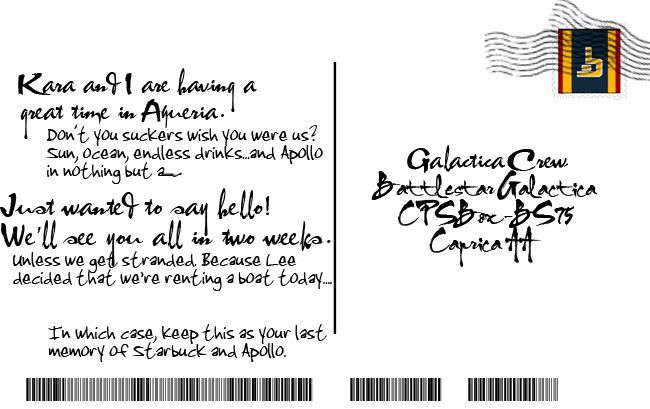 Kara and I are having a
great time in Aqueria.
Don't you suckers wish you were us?
Sun, ocean, endless drinks...and Apollo
in nothing but a
Just wanted to say hello!
We'll see you all in two weeks.
Unless we get stranded. Because Lee
decided that we're renting a boat today....
In which case, keep this as your last
memory of Starbuck and Apollo.
Galactica Crew
Battlestar Galactica
CPS Box-BS75
Caprica AA